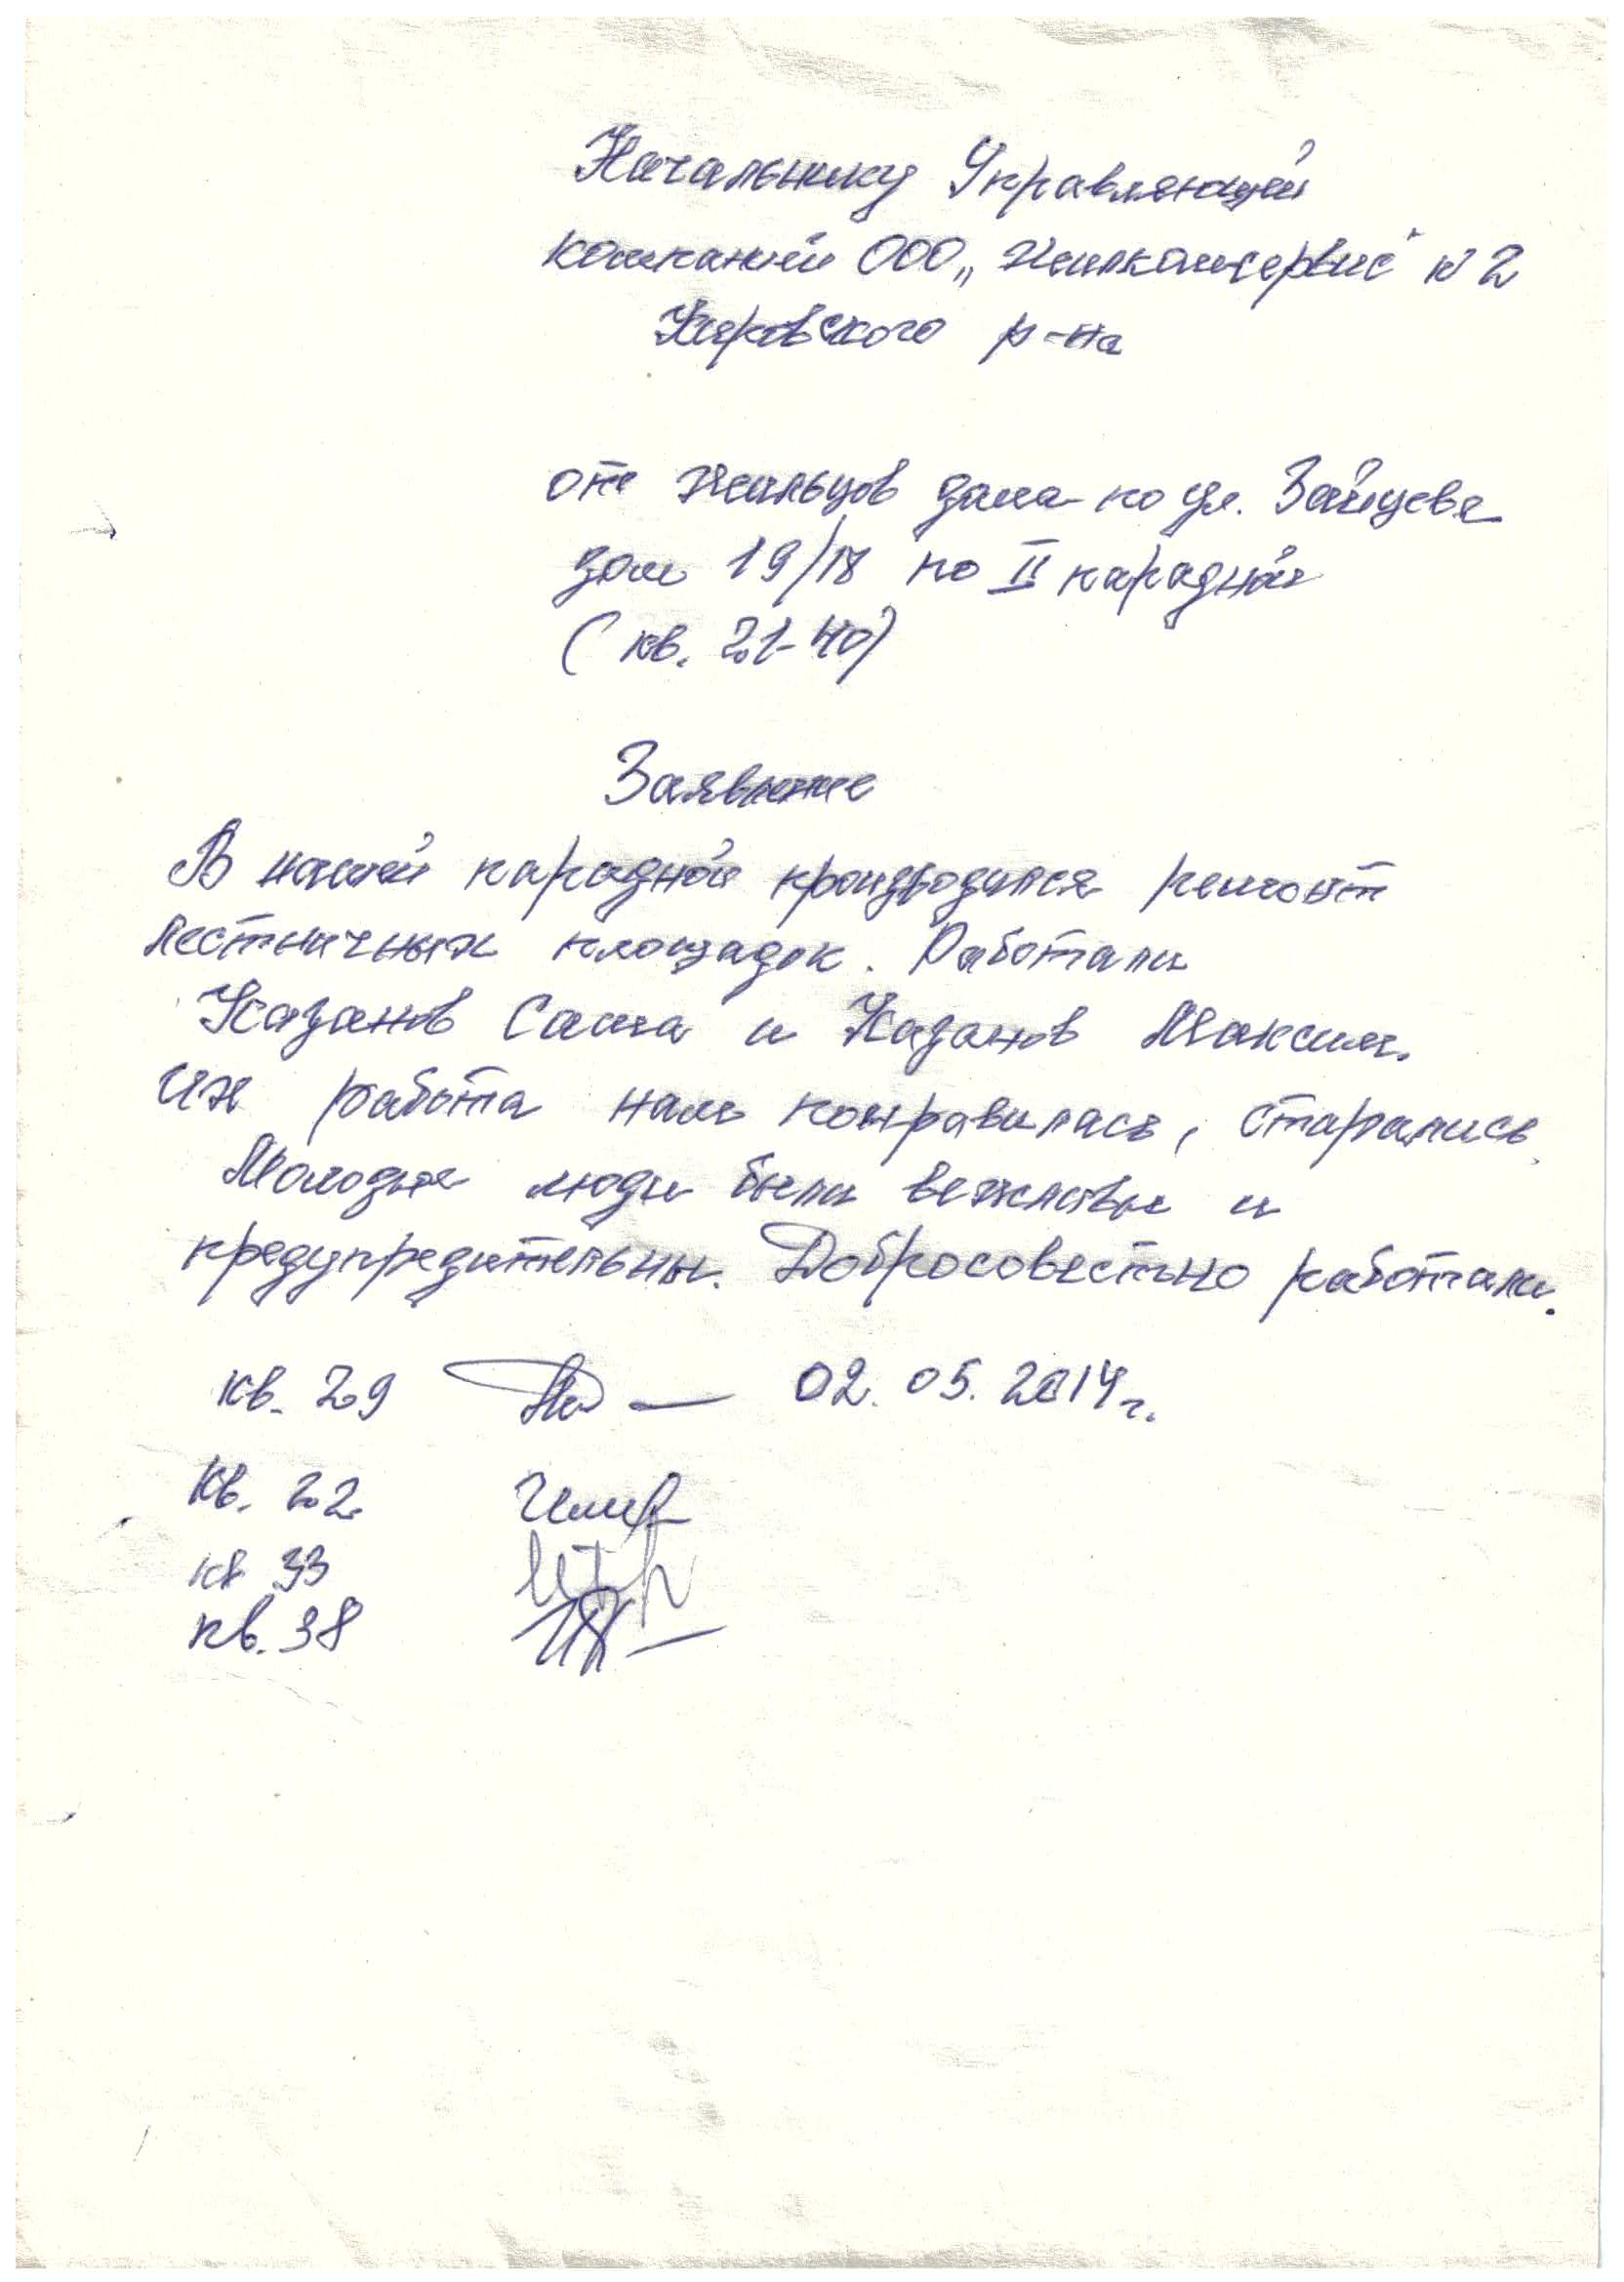 Начальнику Управляющей
компанией ООО „Жилкомсервис" N 2
Кировского р-на
от жильцов дома по ул. Зайцева
дом 19/18 по II парадной
(кв. 21-40)
Заявление
В нашей парадной производился ремонт
лестничных площадок. Работали
Казанов Саша и Казанов Максим.
Их работа нам понравилась, старались.
Молодые люди были вежливы и
предупредительны. Добросовестно работали.
кв. 29 02. 05. 2014 г.
кв. 22
кв 33
кв. 38